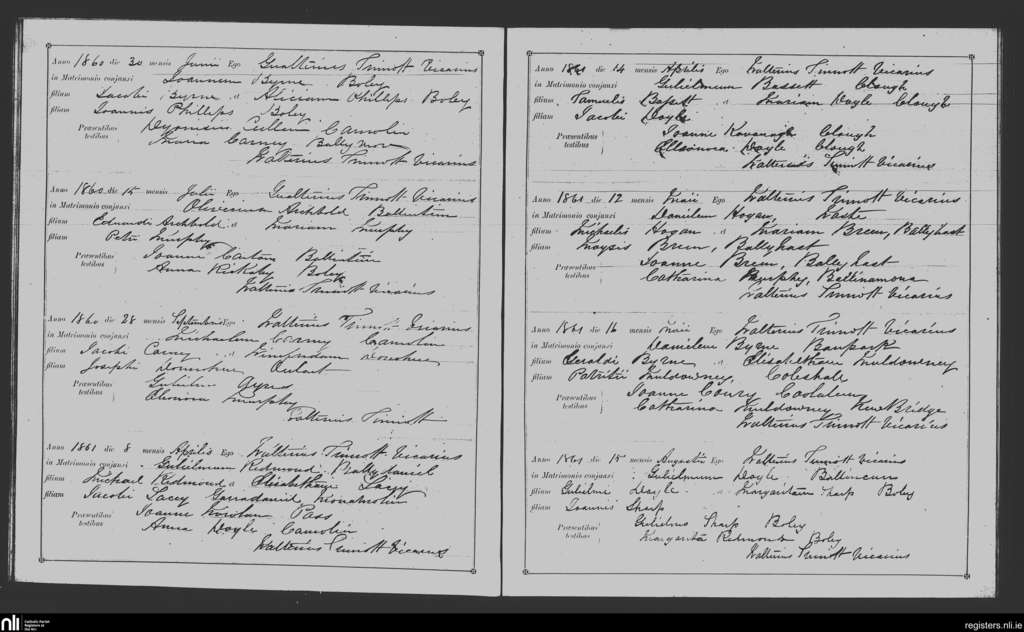 Anno 1860 die 30 mensis Junii Ego Gualterius Sinnott Vicarius
in Matrimonio conjunxi Joannem Byrne Boley
filium Jacobi Byrne et Aliciam Phillips Boley
filiam Joannis Phillips Boley
Præsentibus testibus Dyonisius Cullen Camolin
Maria Carney Ballymore
Walterius Sinnott Vicarius
Anno 1860 die 15 mensis Julii Ego Gualterius Sinnott Vicarius
in Matrimonio conjunxi Oliverium Archbold
filium Edmundi Archbold et Mariam Murphy
filiam Petri Murphy
Præsentibus testibus Joanne
Anna Boley
Walterius Sinnott Vicarius
Anno 1860 die 28 mensis Septembris Ego Walterius Sinnott Vicarius
in Matrimonio conjunxi Michaelem Carny Camolin
filium Jacobi Carny et Donohue
filiam Josephi Donohue Oulart
Præsentibus testibus Gulielmo
Elenora Murphy
Walterius Sinnott
Anno 1861 die 8 mensis Aprilis Ego Walterius Sinnott Vicarius
in Matrimonio conjunxi Gulielmum Redmond Ballydaniel
filium Michael Redmond et Elisabetham Lacey
filiam Jacobi Lacey
Præsentibus testibus Joanne Pass
Anna Doyle Camolin
Walterius Sinnott Vicarius
Anno 1861 die 14 mensis Aprilis Ego Walterius Sinnott Vicarius
in Matrimonio conjunxi Gulielmum Bassett Clough
filium Samuelis Bassett et Mariam Doyle Clough
filiam Jacobi Doyle
Præsentibus testibus Joanne Kavanagh Clough
Elleonora Doyle Clough
Walterius Sinnott Vicarius
Anno 1861 die 12 mensis Maii Ego Walterius Sinnott Vicarius
in Matrimonio conjunxi Danielem Hogan,
filium Michaelis Hogan et Mariam Breen, Ballyhast
filiam Moysis Breen, Ballyhast
Præsentibus testibus Joanne Breen, Baleyhast
Catharina Murphy, Bellinamona
Walterius Sinnott Vicarius
Anno 1861 die 16 mensis Maii Ego Walterius Sinnott Vicarius
in Matrimonio conjunxi Danielem Byrne Banpark
filium Geraldi Byrne et Elisabetham Muldowney
filiam Patritii Muldowney, Coleshale
Præsentibus testibus Joanne
Catharina Muldowney New Bridge
Walterius Sinnott Vicarius
Anno 1861 die 15 mensis Augusti Ego Walterius Sinnott Vicarius
in Matrimonio conjunxi Gulielmum Doyle
filium Gulielmi Doyle et Margaritam Sharp Boley
filiam Joannis Sharp
Præsentibus testibus Gulielmus Sharp Boley
Margarita Redmond Boley
Walterius Sinnott Vicarius
nli Catholic Parish Registers at the NLI
registers.nli.ie